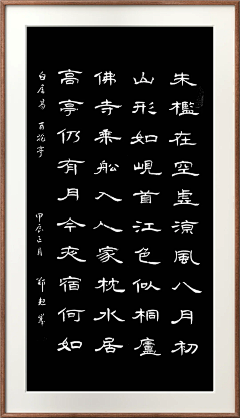 朱檻在空虛涼風八月初
山形如峴首江色似桐廬
佛寺乘舩入人家枕水居
高亭仍有月今夜宿何如
白居易 百花亭 甲辰正月